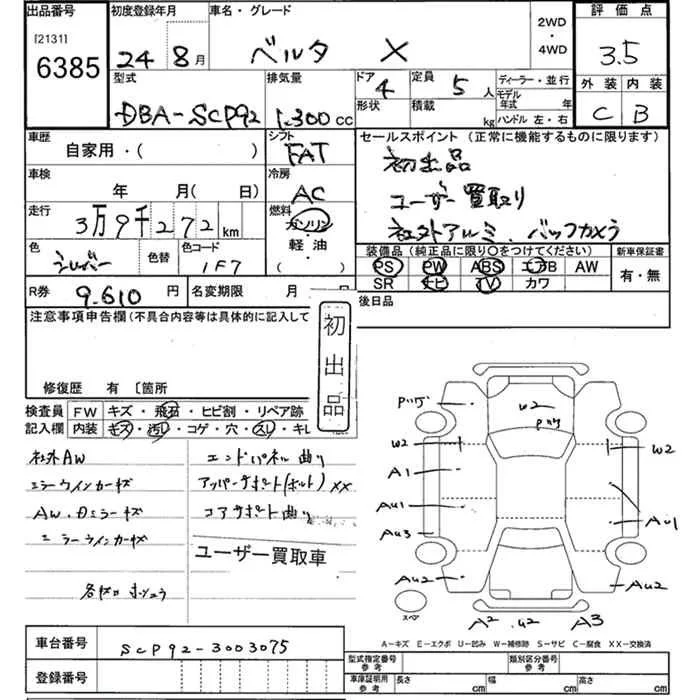 出品番号 初度登録年月 車名・グレード 2WD・4WD 評価点
[2131]
6385 24 8月 ベルタ X 3.5
型式 排気量 ドア 4 定員 5人 ディーラー・並行 外装 内装
DBA-SCP92 1.300cc 形状 積載 kg モデル年式 年 ハンドル 左・右 C B
車歴 シフト セールスポイント(正常に機能するものに限ります)
自家用・( ) FAT 初出品
車検 年 月(日) 冷房 AC ユーザー買取り
走行 3万9千272km 燃料 ガソリン 社外アルミ、バックカメラ
軽油・( )
色 シルバー 色替 色コード 1F7
装備品(純正品に限り○をつけてください) 新車保証書
PS PW ABS エアB AW 有・無
SR ナビ TV カワ
R券 9.610円 名変期限 月 日 後日品
注意事項申告欄(不具合内容等は具体的に記入して
初出品
修復歴 有 〔箇所
検査員記入欄 FW キズ・飛石・ヒビ割・リペア跡
内装 キズ・汚レ・コゲ・穴・スレ・キレ
社外AW エンドパネル曲り
ミラーウインカーキズ アッパーサポート(ボルト)XX
AW・Dミラーキズ コアサポート曲り
ミラーウインカーキズ ユーザー買取車
Pハゲ W2 Pハゲ
W2 W2
A1
AU1 AU1
AU3
AU2 AU2
スペア A2 U2 A3
A−キズ E−エクボ U−凹み W−補修跡 S−サビ C−腐食 XX−交換済
車台番号 SCP92-3003075
登録番号
型式指定番号 参考 類別区分番号 参考
車庫証明用 参考 長さ cm 幅 cm 高さ cm